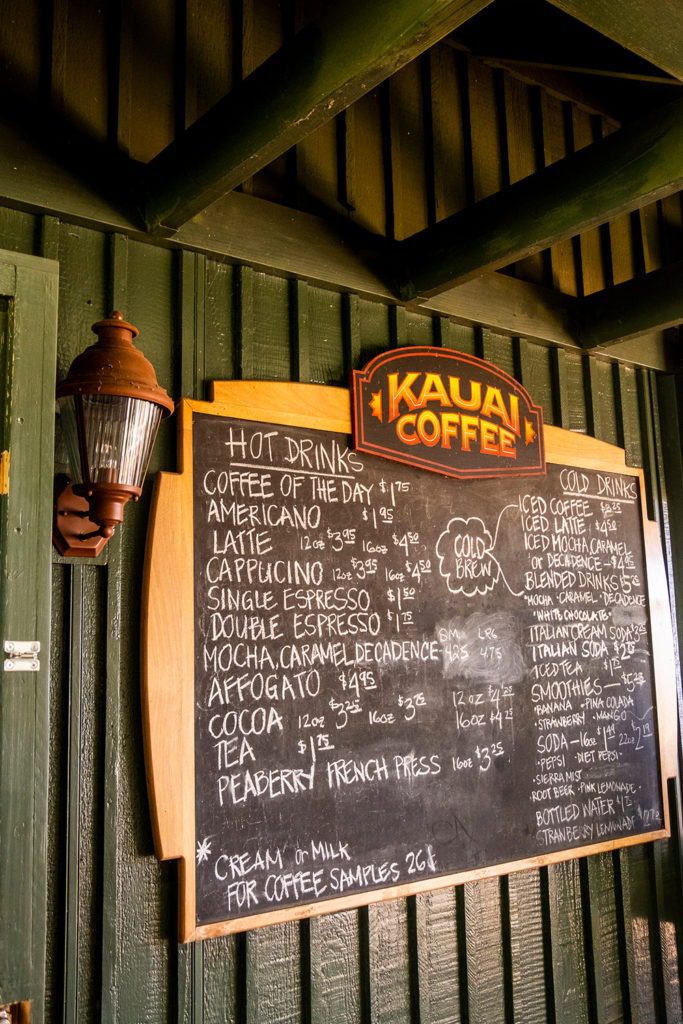 KAUAI
COFFEE
HOT DRINKS
COFFEE OF THE DAY $1.75
AMERICANO $1.95
LATTE 12oz $3.95 16oz $4.50
CAPPUCINO 12oz $3.95 16oz $4.50
SINGLE ESPRESSO $1.50
DOUBLE ESPRESSO $1.75
MOCHA, CARAMEL, DECADENCE SM. 4.25 LRG 4.75
AFFOGATO $4.95
COCOA 12oz $3.25 16oz $3.75 12oz $4
TEA $1.75 16oz $4
PEABERRY FRENCH PRESS 16oz $3.25
* CREAM or MILK
FOR COFFEE SAMPLES 26¢
COLD
BREW
COLD DRINKS
ICED COFFEE
ICED LATTE $4.50
ICED MOCHA, CARAMEL
or DECADENCE - $4.95
BLENDED DRINKS $5.25
·MOCHA ·CARAMEL ·DECADENCE
·WHITE CHOCOLATE·
ITALIAN CREAM SODA
ITALIAN SODA
ICED TEA
SMOOTHIES —
·BANANA ·PINA COLADA
·STRAWBERRY ·MANGO
SODA - 16oz 22oz
·PEPSI ·DIET PEPSI·
·SIERRA MIST
·ROOT BEER ·PINK LEMONADE·
BOTTLED WATER
STRAWBERRY LEMONADE